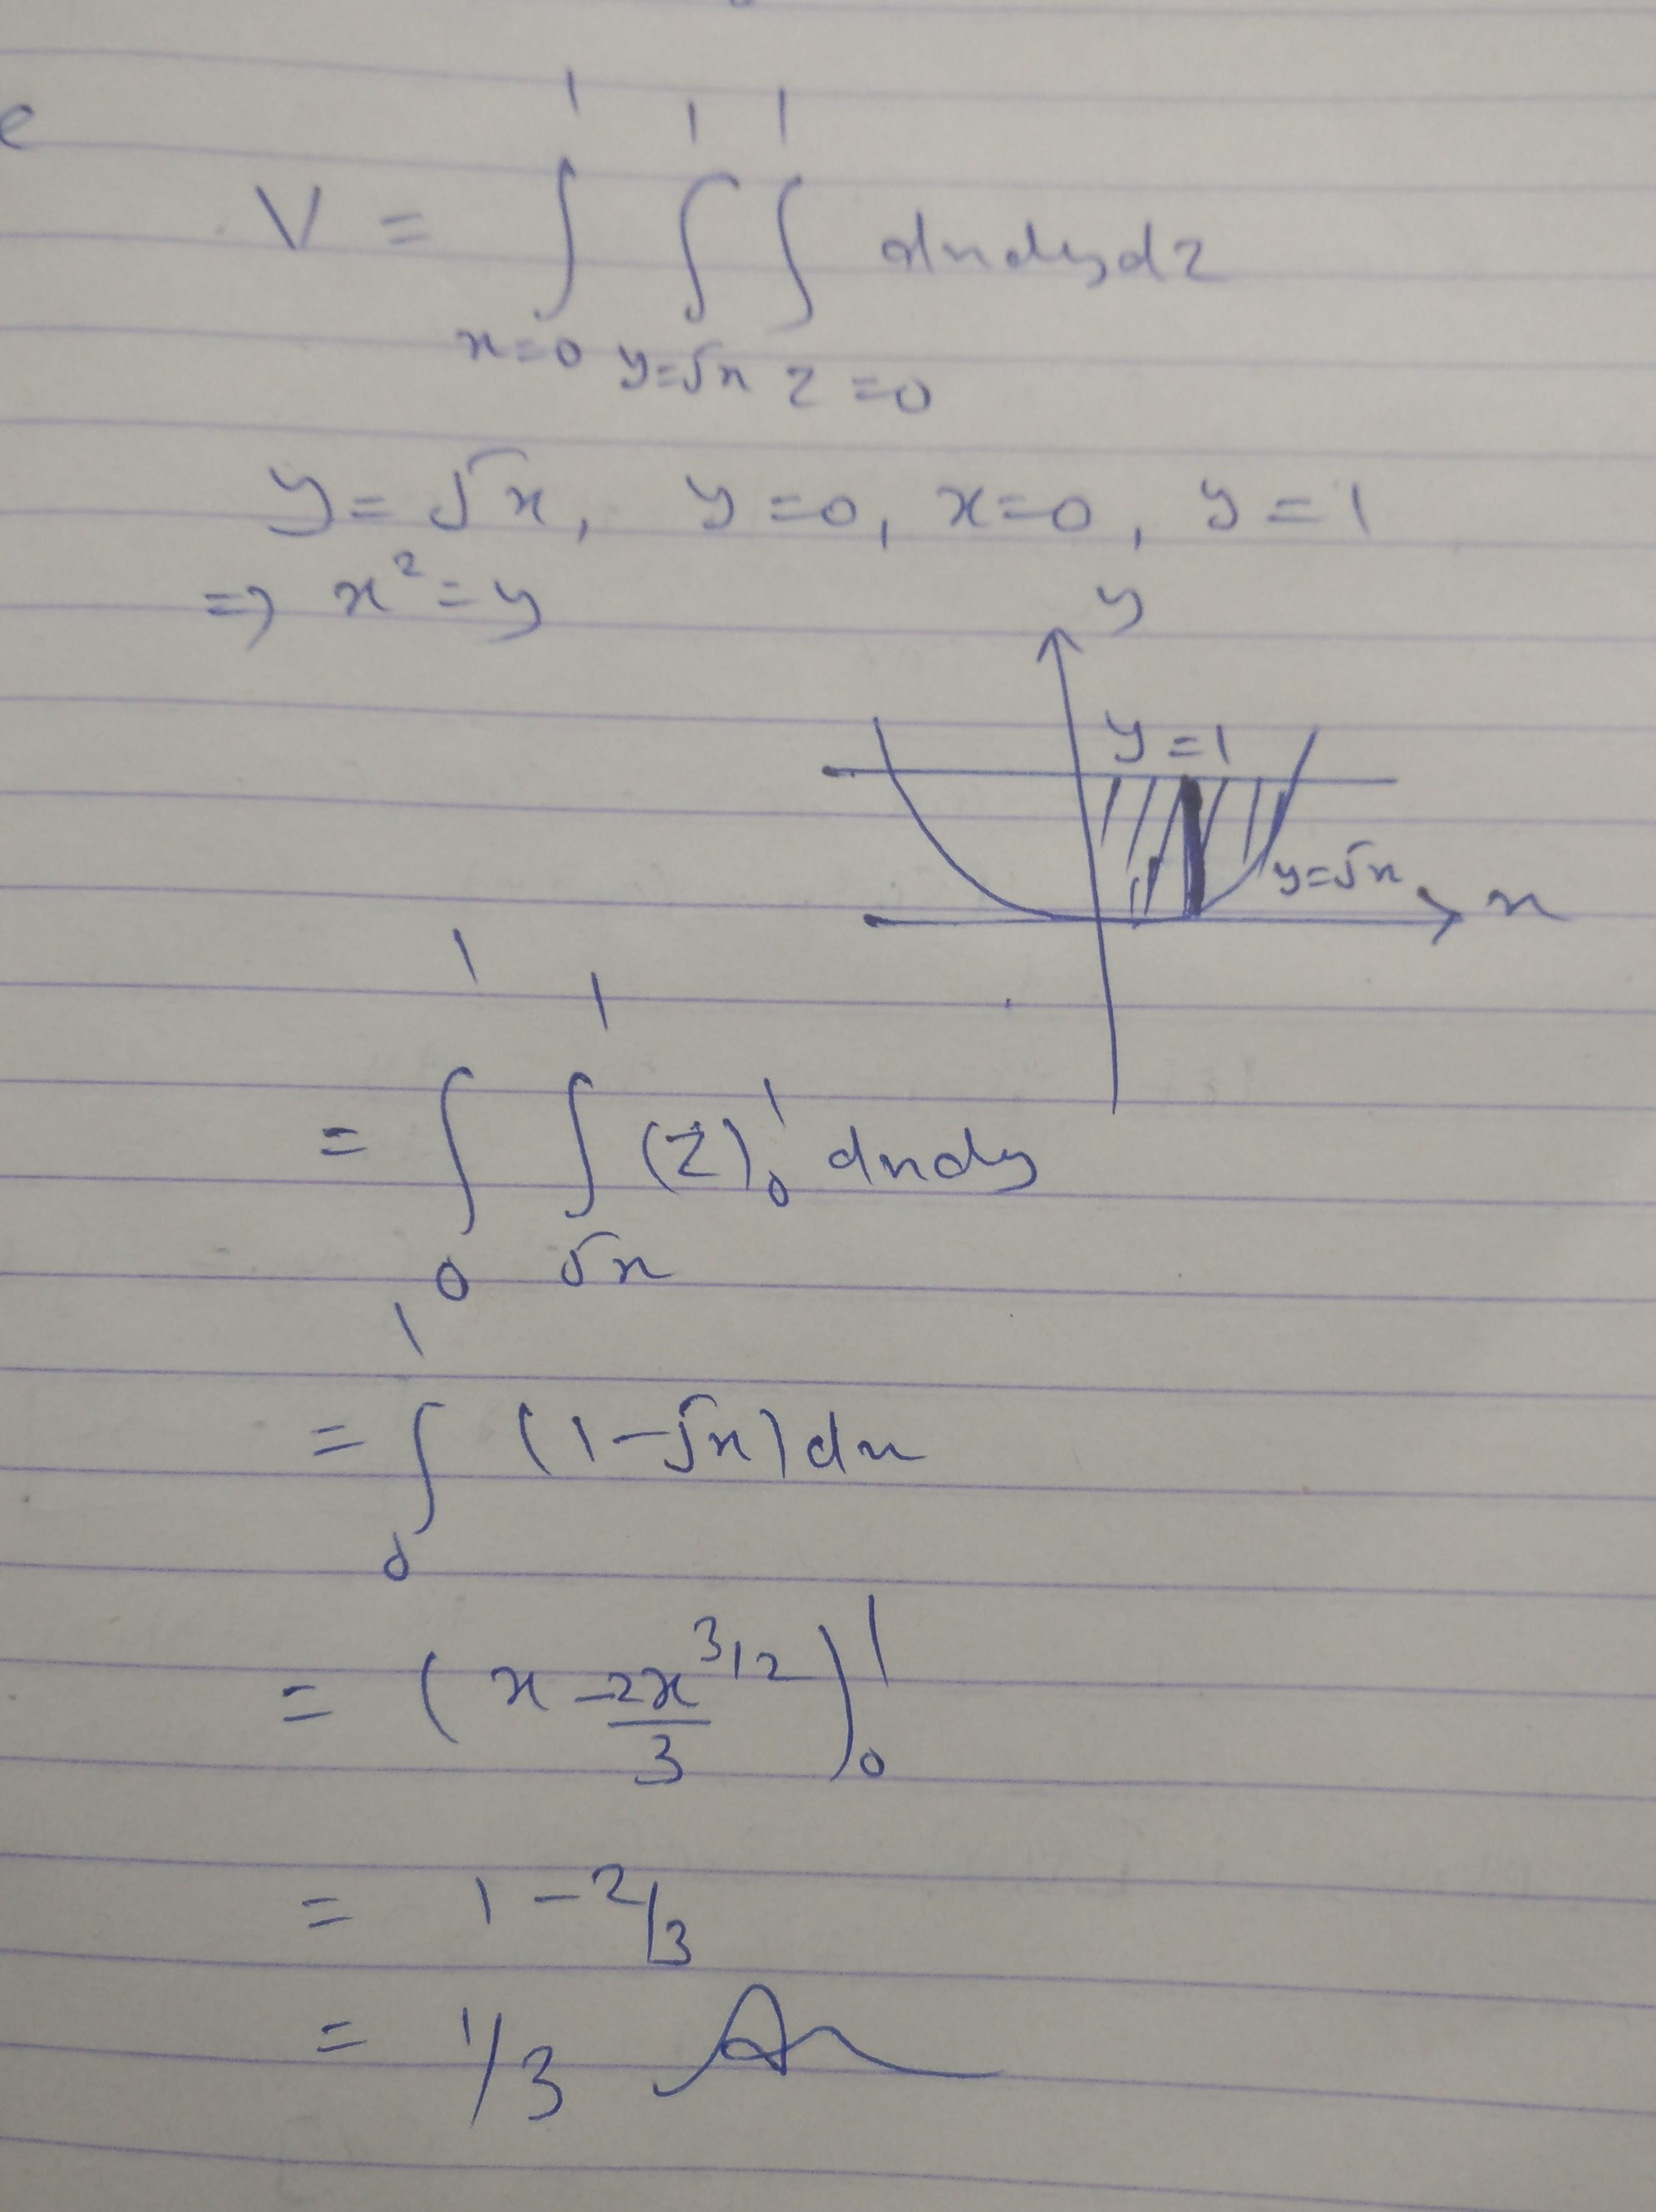 e
V = ∫_{x=0}^{1} ∫_{y=√x}^{1} ∫_{z=0}^{1} dxdydz
y = √x, y=0, x=0, y=1
⇒ x² = y
y
y=1
y=√x
x
= ∫_{0}^{1} ∫_{√x}^{1} (z)_{0}^{1} dxdy
= ∫_{0}^{1} (1-√x)dx
= (x - 2x^{3/2}/3)_{0}^{1}
= 1 - 2/3
= 1/3 An